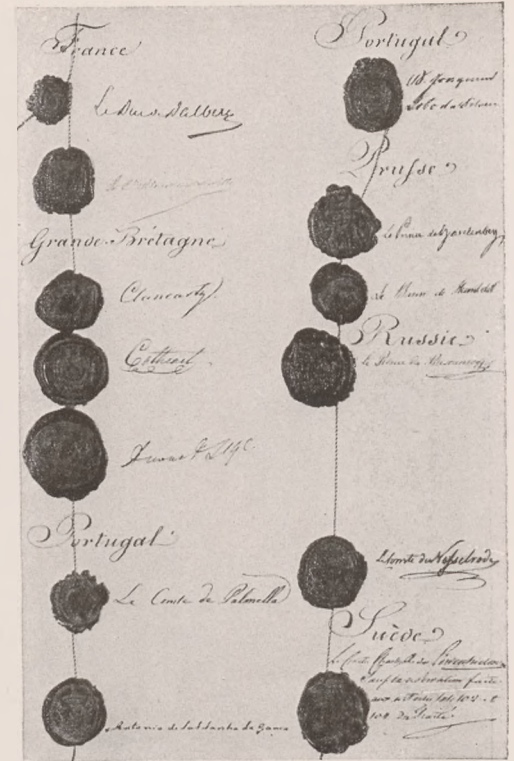 France
Le Duc de Dalberg
Grande-Brétagne
Clancarty
Cathcart
Stewart L. G.
Portugal
Le Comte de Palmella
Antonio de Saldanha da Gama
Portugal
D. Joaquim
Lobo da Silveira
Prusse
Le Prince de Hardenberg
Le Baron de Humboldt
Russie
le Prince de Rasoumoffsky
Le Comte de Nesselrode
Suède
Le Comte Charles Axel de Löwenhielm
sauf la réservation faite
aux articles 101, 102 et
104 du Traité